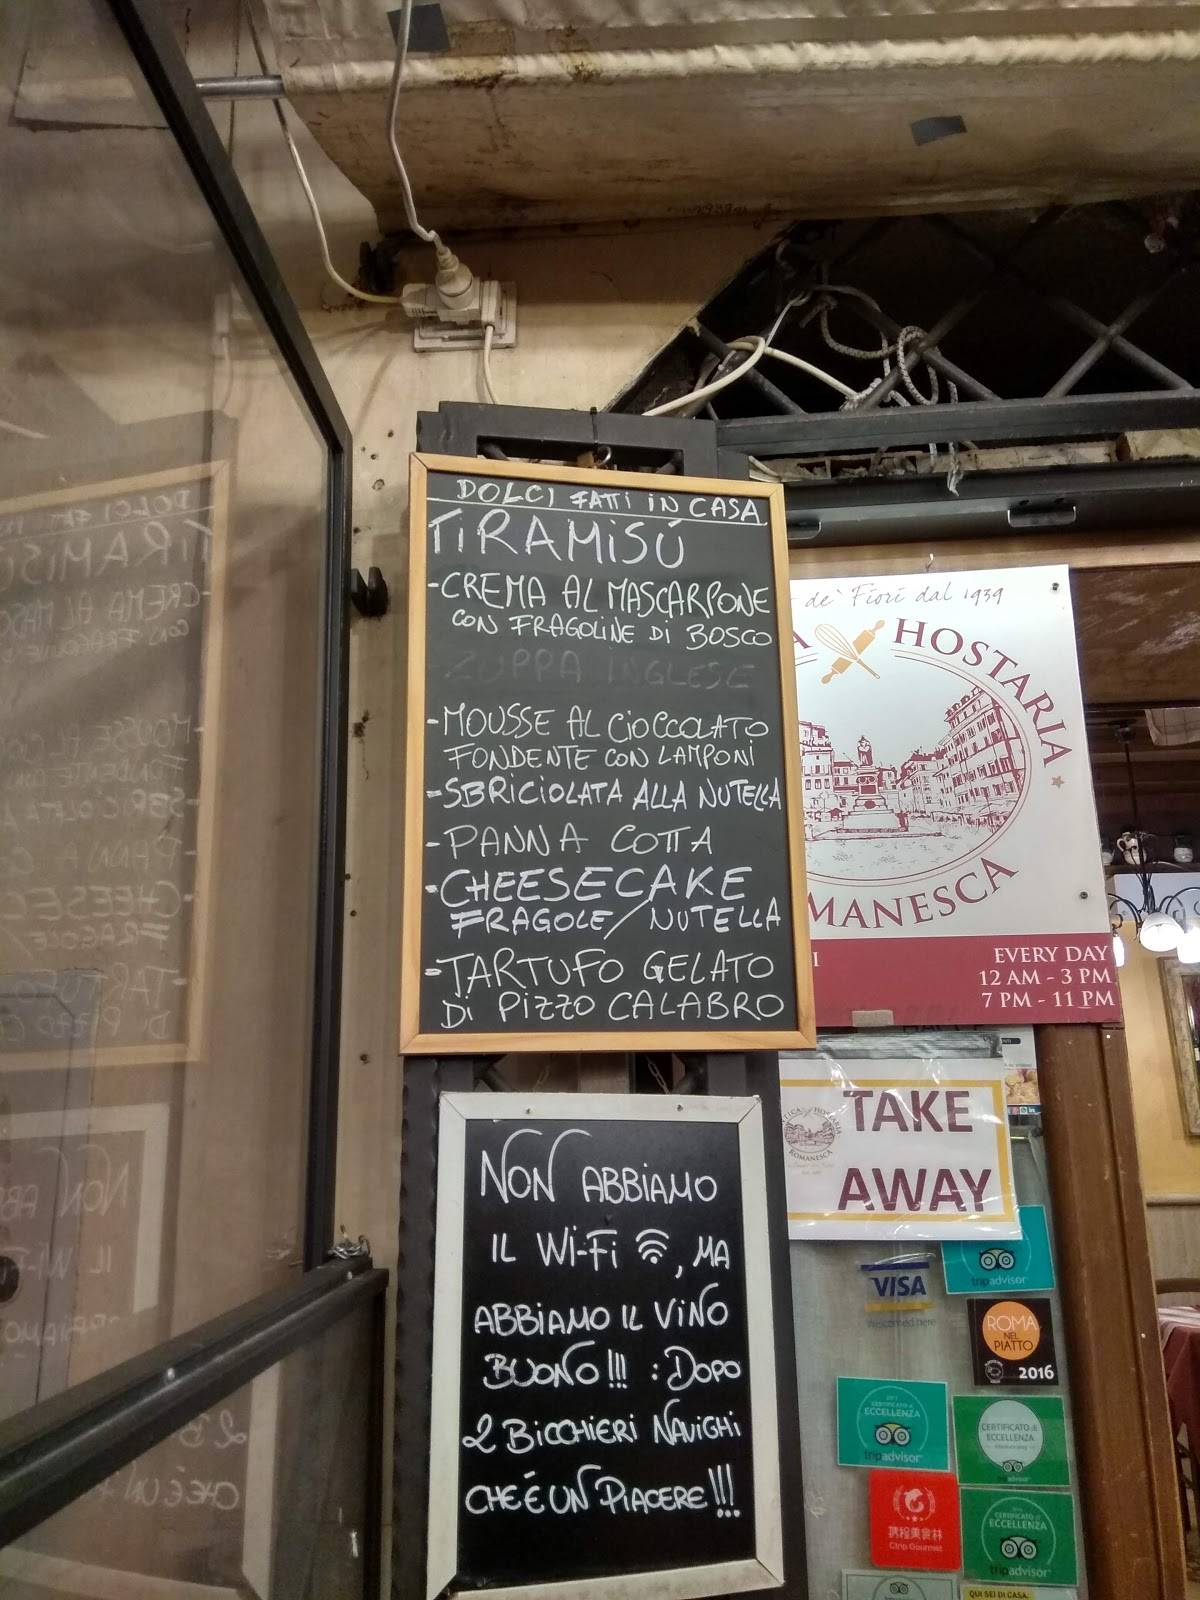 DOLCI FATTI IN CASA
TIRAMISÚ
- CREMA AL MASCARPONE
CON FRAGOLINE DI BOSCO
- ZUPPA INGLESE
- MOUSSE AL CIOCCOLATO
FONDENTE CON LAMPONI
- SBRICIOLATA ALLA NUTELLA
- PANNA COTTA
- CHEESECAKE
FRAGOLE/NUTELLA
- TARTUFO GELATO
DI PIZZO CALABRO
NON ABBIAMO
IL WI-FI, MA
ABBIAMO IL VINO
BUONO!!! : DOPO
2 BICCHIERI NAVIGHI
CHE É UN PIACERE!!!
de' Fiori dal 1939
HOSTARIA
MANESCA
EVERY DAY
12 AM - 3 PM
7 PM - 11 PM
HOSTARIA
ROMANESCA
TAKE
AWAY
VISA
Welcomed here
tripadvisor
ROMA
NEL
PIATTO
2016
CERTIFICATO di
ECCELLENZA
tripadvisor
CERTIFICATO di
ECCELLENZA
tripadvisor
携程美食林
Ctrip Gourmet
CERTIFICATO di
ECCELLENZA
tripadvisor
QUI SEI DI CASA.